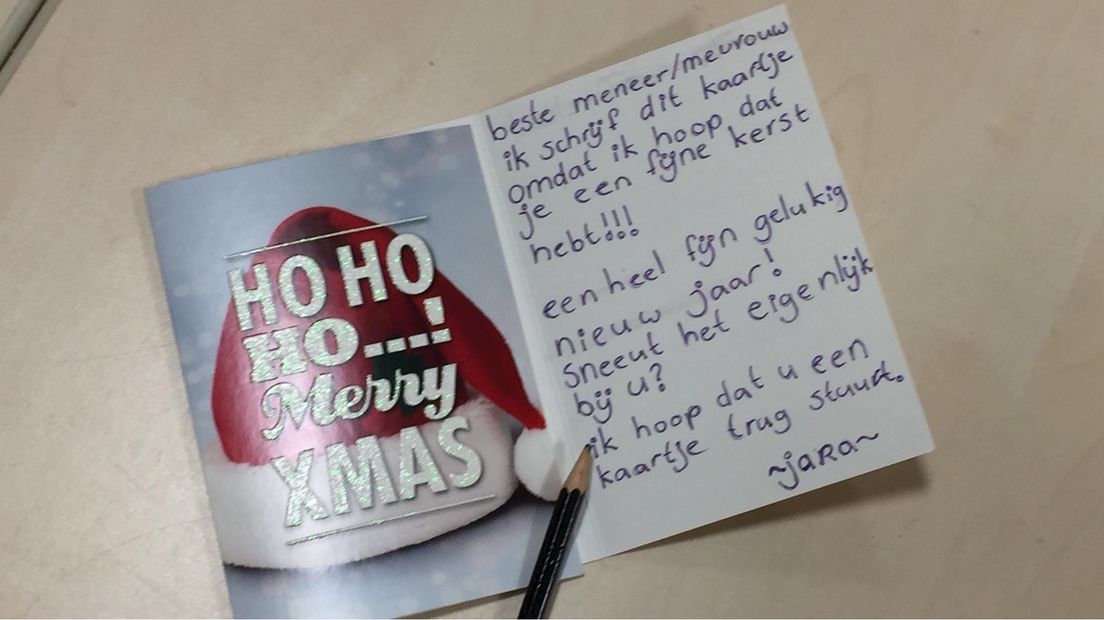 HO HO
HO...!
Merry
XMAS
beste meneer/mevrouw
ik schrijf dit kaartje
omdat ik hoop dat
je een fijne kerst
hebt!!!
een heel fijn gelukig
nieuw jaar!
Sneeut het eigenlijk
bij u?
ik hoop dat u een
kaartje trug stuurt.
~jaRa~